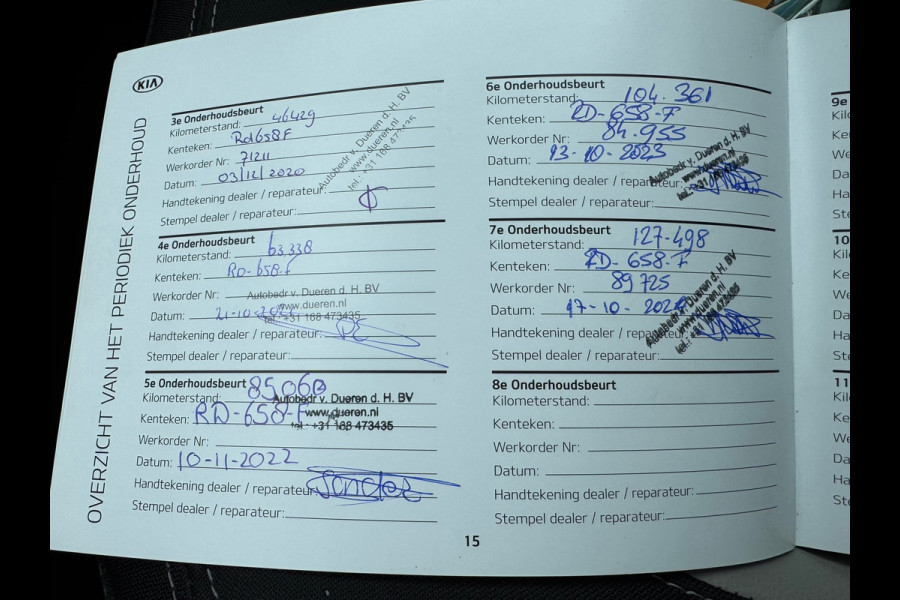 KIA
OVERZICHT VAN HET PERIODIEK ONDERHOUD
3e Onderhoudsbeurt
Kilometerstand: 46429
Kenteken: Rd658F
Werkorder Nr: 71211
Datum: 03/12/2020
Handtekening dealer / reparateur:
Stempel dealer / reparateur:
Autobedr v. Dueren d. H. BV
www.dueren.nl
tel: +31 168 473435
4e Onderhoudsbeurt
Kilometerstand: 63.338
Kenteken: RD-658-F
Werkorder Nr:
Datum: 21-10-2021
Handtekening dealer / reparateur:
Stempel dealer / reparateur:
Autobedr v. Dueren d. H. BV
www.dueren.nl
tel: +31 168 473435
5e Onderhoudsbeurt
Kilometerstand: 85060
Kenteken: RD-658-F
Werkorder Nr:
Datum: 10-11-2022
Handtekening dealer / reparateur:
Stempel dealer / reparateur:
Autobedr v. Dueren d. H. BV
www.dueren.nl
tel: +31 168 473435
6e Onderhoudsbeurt
Kilometerstand: 104.361
Kenteken: RD-658-F
Werkorder Nr: 84.955
Datum: 13-10-2023
Handtekening dealer / reparateur:
Stempel dealer / reparateur:
Autobedr v. Dueren d. H. BV
www.dueren.nl
tel: +31 168 473435
7e Onderhoudsbeurt
Kilometerstand: 127-498
Kenteken: RD-658-F
Werkorder Nr: 89725
Datum: 17-10-2024
Handtekening dealer / reparateur:
Stempel dealer / reparateur:
Autobedr v. Dueren d. H. BV
www.dueren.nl
tel: +31 168 473435
8e Onderhoudsbeurt
Kilometerstand:
Kenteken:
Werkorder Nr:
Datum:
Handtekening dealer / reparateur:
Stempel dealer / reparateur:
15
9e
10
11